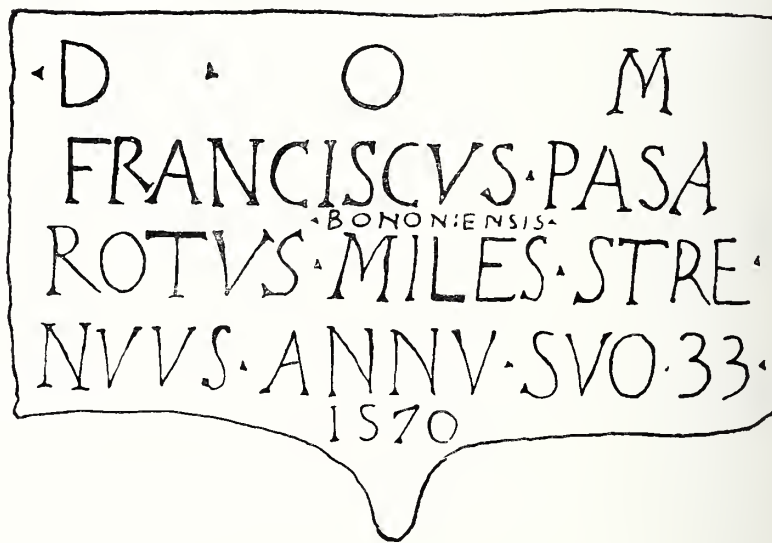 ·D · O M
FRANCISCVS·PASA
·BONONIENSIS·
ROTVS·MILES·STRE·
NVVS·ANNV·SVO·33·
1570